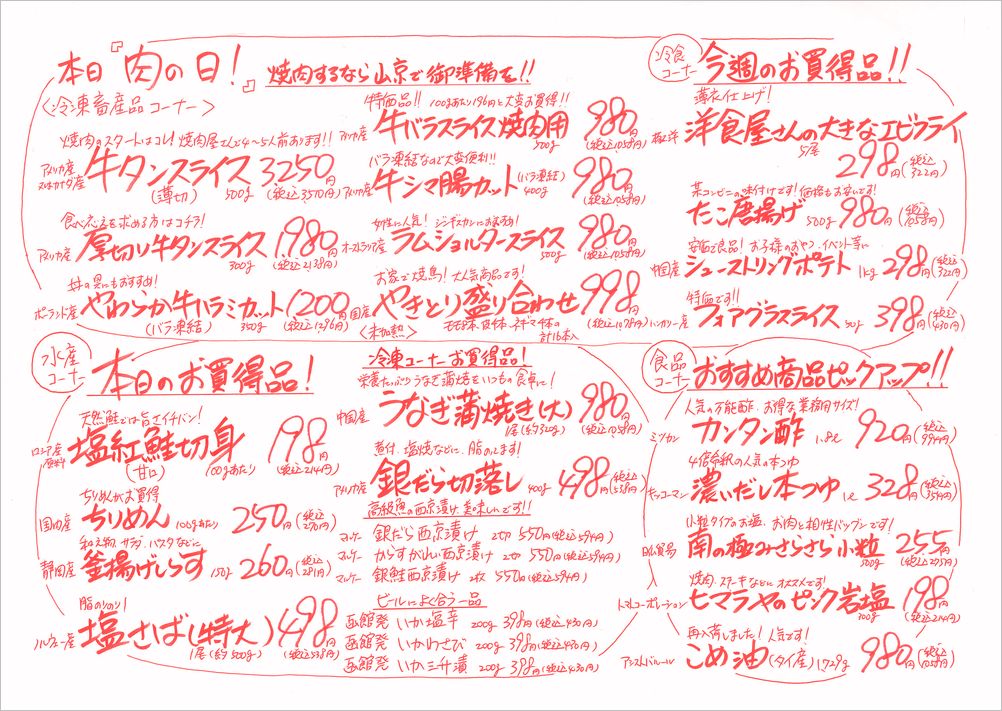 本日『肉の日！』 焼肉するなら山京で御準備を!!
<冷凍畜産品コーナー>
焼肉のスタートはコレ! 焼肉屋さんで4〜5人前あります!!
アメリカ産
牛タンスライス 3250円
(薄切) 500g (税込3,510円)
食べ応えを求める方はコチラ!
アメリカ産 厚切り牛タンスライス 1,980円
300g (税込2,138円)
丼の具にもおすすめ!
ポーランド産 やわらか牛ハラミカット 1,200円
(バラ凍結) 350g (税込1,296円)
特価品!! 100gあたり196円と大変お買得!!
アメリカ産 牛バラスライス焼肉用 980円
500g (税込1,058円)
バラ凍結なので大変便利!!
アメリカ産 牛シマ腸カット (バラ凍結) 400g 980円
(税込1,058円)
女性に人気! ジンギスカンにおすすめ!
オーストラリア産 ラムショルダースライス 980円
500g (税込1,058円)
お家で焼鳥! 大人気商品です!
国産 やきとり盛り合わせ 998円
<未加熱> モモ5本 皮5本 ネギマ6本の計16本入 (税込1,078円)
冷食コーナー 今週のお買得品!!
薄衣仕上げ!
洋食屋さんの大きなエビフライ
5尾 298円 (税込322円)
某コンビニの味付けです! 価格もお安いです!
たこ唐揚げ 500g 980円 (税込1058円)
安価で良品! お子様のおやつ、イベント等に
中国産 シューストリングポテト 1kg 298円 (税込322円)
特価です!!
ハンガリー産 フォアグラスライス 50g 398円 (税込430円)
水産コーナー 本日のお買得品!
天然鮭では旨さイチバン!
ロシア産原料 塩紅鮭切身 198円
(甘口) 100gあたり (税込214円)
ちりめんがお買得
国内産 ちりめん 100gあたり 250円 (税込270円)
和え物、サラダ、パスタなどに
静岡産 釜揚げしらす 150g 260円 (税込281円)
脂のり◎!
ノルウェー産 塩さば(特大) 498円
1尾(約500g) (税込538円)
冷凍コーナーお買得品!
栄養たっぷりうなぎ蒲焼をいつもの食卓に!
中国産 うなぎ蒲焼き(大) 980円
1尾(約320g) (税込1,058円)
煮付、塩焼などに。脂のってます!
アメリカ産 銀だら切落し 400g 498円 (税込538円)
高級魚の西京漬け 美味しいです!!
マルケー 銀だら西京漬け 2切 550円(税込594円)
マルケー からすがれい西京漬け 2切 550円(税込594円)
マルケー 銀鮭西京漬け 2枚 550円(税込594円)
ビールによく合う一品
函館発 いか塩辛 200g 398円(税込430円)
函館発 いかわさび 200g 398円(税込430円)
函館発 いか三升漬 200g 398円(税込430円)
食品コーナー おすすめ商品ピックアップ!!
人気の万能酢、お得な業務用サイズ!
ミツカン カンタン酢 1.8L 920円 (税込994円)
4倍希釈の人気の本つゆ
キッコーマン 濃いだし本つゆ 1L 328円 (税込354円)
小粒タイプのお塩、お肉と相性バツグンです!
南の極みさらさら小粒 255円
500g (税込275円)
焼肉、ステーキなどにオススメです!
トマトコーポレーション ヒマラヤのピンク岩塩 198円
100g (税込214円)
再入荷しました! 人気です!
こめ油 (タイ産) 1729g 980円 (税込1058円)